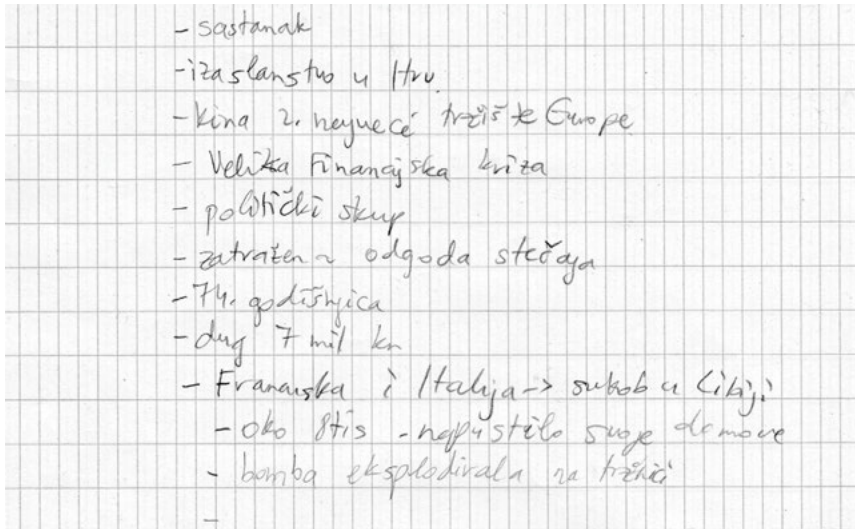 - sastanak
- izaslanstvo u Hrv.
- kina 2. najveće tržište Europe
- Velika Financijska kriza
- politički skup
- zatražena odgoda stečaja
- 74. godišnjica
- dug 7 mil kn
- Francuska i Italija -> sukob u Libiji
- oko 8tis - napustilo svoje domove
- bomba eksplodirala na tržnici
-